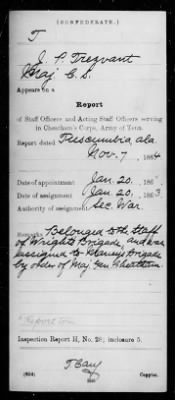 (CONFEDERATE.)
T
J. P. Trezvant
Maj C. S.
Appears on a
Report
of Staff Officers and Acting Staff Officers serving
in Cheatham's Corps, Army of Tenn.
Report dated Tuscumbia, ala
Nov. 7, 1864
Date of appointment Jan 20, 186
Date of assignment Jan 20, 1863.
Authority of assignment Sec War.
Remarks: Belonged to the Staff
of Wright's Brigade, and was
assigned to Maney's Brigade
by order of Maj. Gen Cheatham
Inspection Report H, No. 28; inclosure 5.
Copyist.